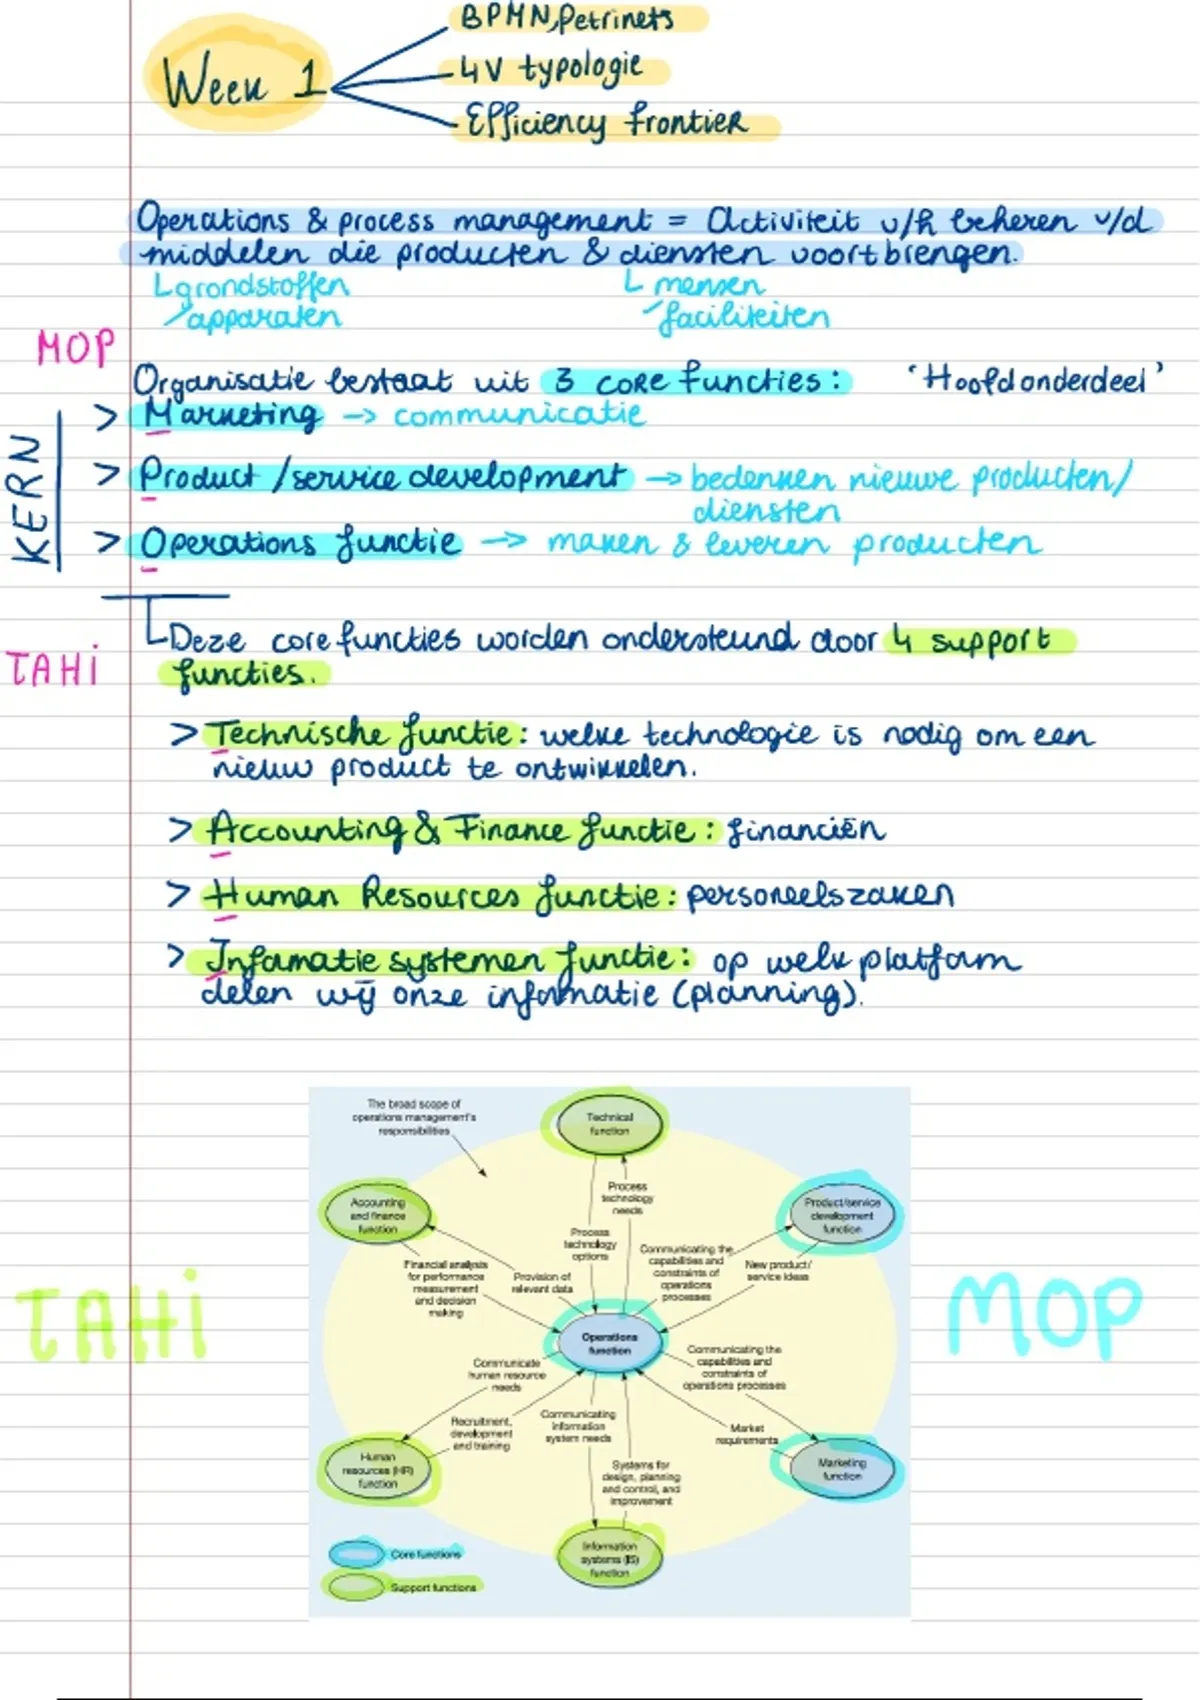 Week 1
BPMN, Petrinets
4V typologie
Efficiency frontier
Operations & process management = Activiteit v/h beheren v/d
middelen die producten & diensten voortbrengen.
grondstoffen
mensen
apparaten
faciliteiten
MOP
Organisatie bestaat uit 3 core functies: 'Hoofdonderdeel'
KERN
> Marketing → communicatie
> Product/service development → bedenken nieuwe producten/
diensten
> Operations functie → maken & leveren producten
TAHi
Deze core functies worden ondersteund door 4 support
functies.
> Technische functie: welke technologie is nodig om een
nieuw product te ontwikkelen.
> Accounting & Finance functie: financiën
> Human Resources functie: personeelszaken
> Informatie systemen functie: op welk platform
delen wij onze informatie (planning).
The broad scope of
operations management's
responsibilities
Technical
function
Accounting
and finance
function
Process
technology
needs
Product/service
development
function
Process
technology
options
Communicating the
capabilities and
constraints of
operations
processes
New product/
service ideas
Financial analysis
for performance
measurement
and decision
making
Provision of
relevant data
TAHi
MOP
Operations
function
Communicate
human resource
needs
Communicating the
capabilities and
constraints of
operations processes
Recruitment,
development
and training
Communicating
information
system needs
Market
requirements
Human
resources (HR)
function
Systems for
design, planning
and control, and
improvement
Marketing
function
Information
systems (IS)
function
Core functions
Support functions